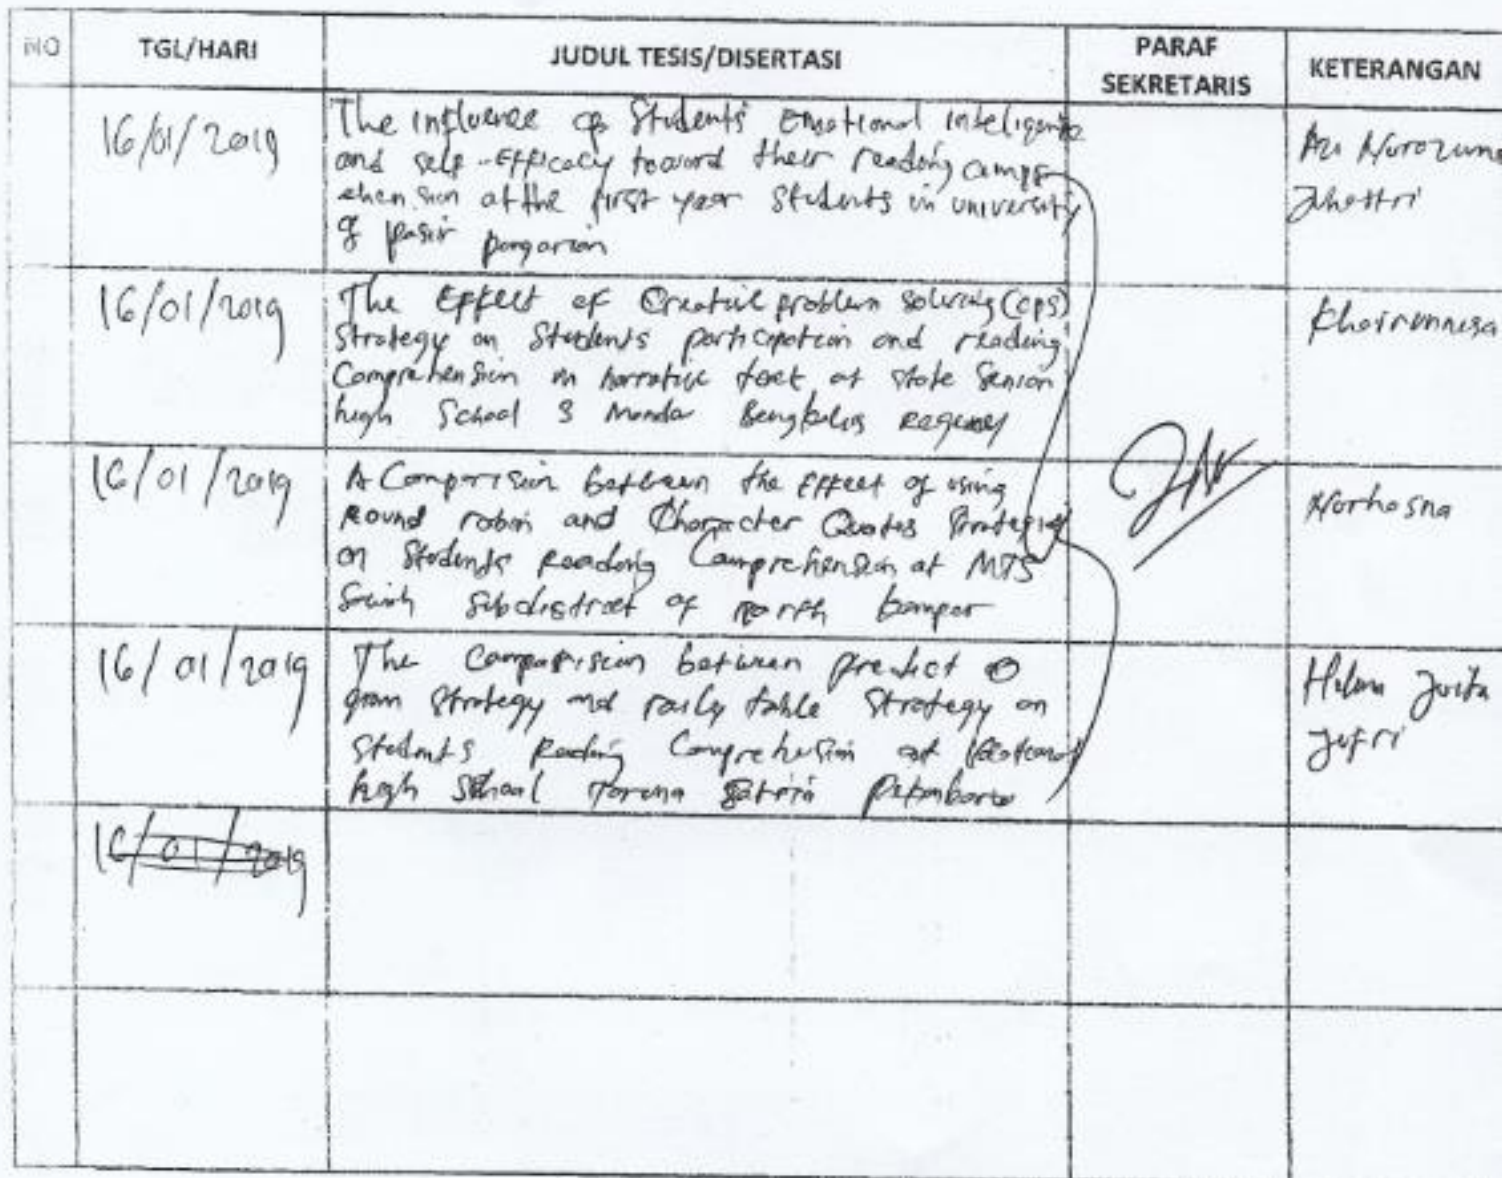 NO TGL/HARI JUDUL TESIS/DISERTASI PARAF SEKRETARIS KETERANGAN
16/01/2019
The influence of Students' Emotional inteligence
and self-Efficacy toward their reading compr
ehension at the first year Students in university
of pasir pangaraian
Nurozuma
16/01/2019
The Effect of Creative problem solving (cps)
Strategy on Students participation and reading
Comprehension on narrative text at state Senior
high School 3 Mandau Bengkalis Regency
Khairunnisa
16/01/2019
A Comparision between the effect of using
Round robin and Character Quotes Strategies
on Students Reading Comprehension at MTS
subdistrict of north kampar
Norhasna
16/01/2019
The Comparision between predict o
gram Strategy and Strategy on
Students Reading Comprehension at
high School Taruna Satria Pekanbaru
Juita
Jufri
16/01/2019